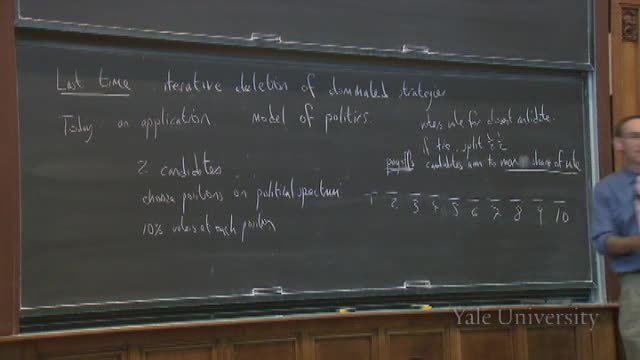 Last time iterative deletion of dominated strategies
Today an application model of politics.
2 candidates
choose positions on political spectrum
10% voters at each position
voters vote for closest candidate.
if tie, split ½ ½
payoffs candidates aim to max share of vote
1 2 3 4 5 6 7 8 9 10
Yale University